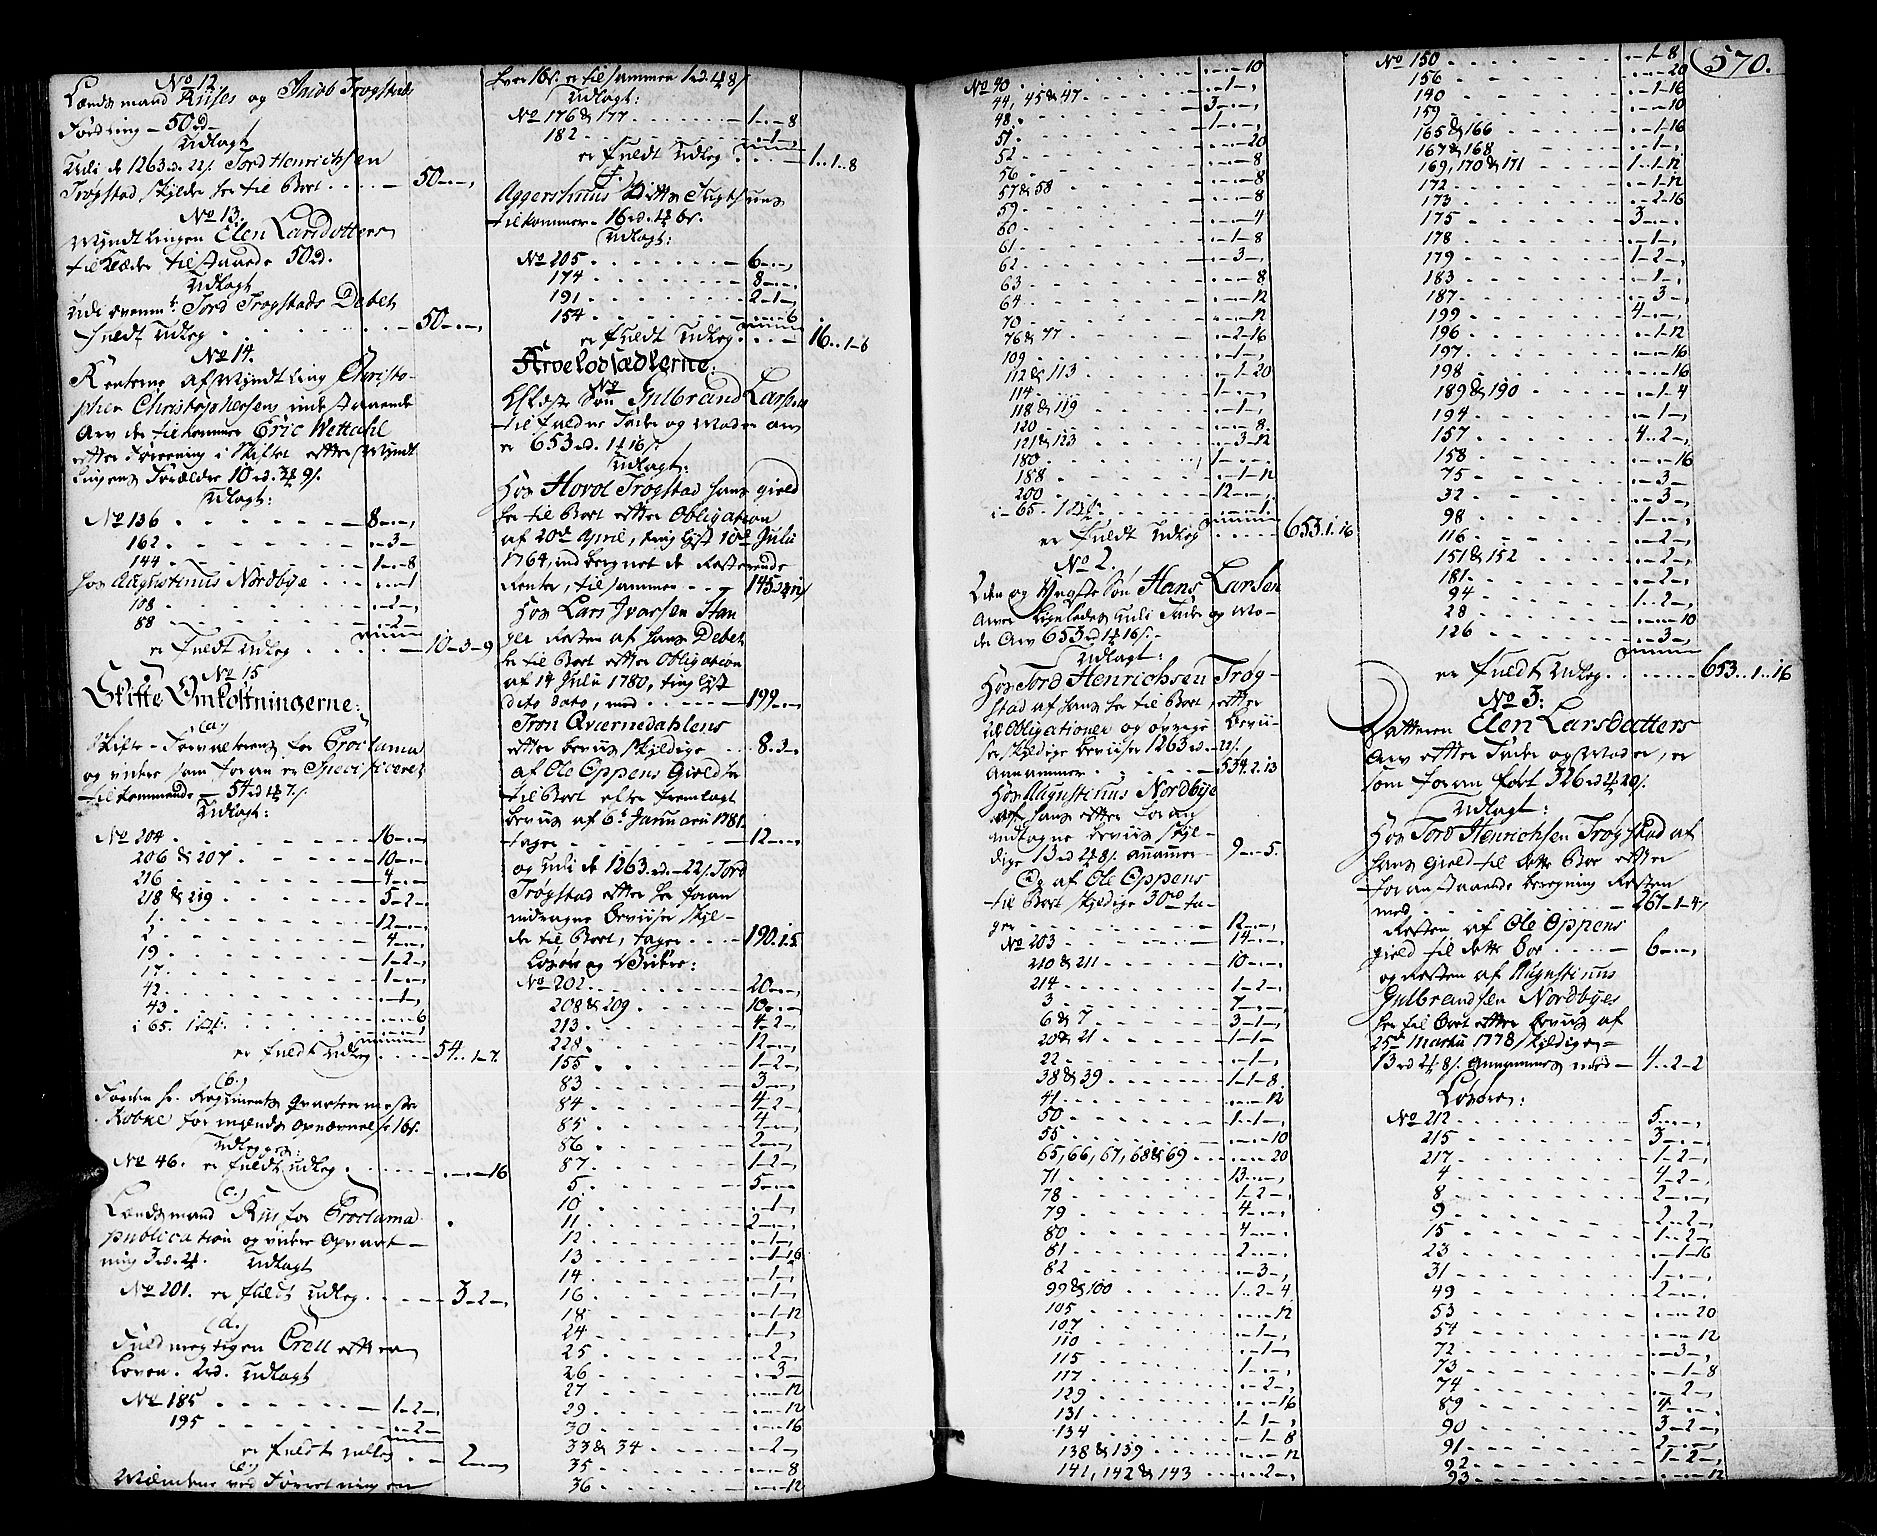 No 12.
Lændsmand Ruses og Jacob Trogstads
Fordring - 50 rd -
Udlagt
Udi de 1263 rd. 22 s. Tord Henrichsen
Trøgstad skylder her til Boet . . . . - 50 - -,
No 13.
Myndtlingen Elen Larsdotters
til Klæder tilstaaede 50 rd.
Udlagt
Udi ovenm.te Tord Trogstads Debet
fuldt Udlæg . . . . . . 50 - -,
No 14.
Renterne af Myndtling Christo-
pher Christophersens indestaaende
Arv der tilkommer Eric Wettahl
efter Førening i Skiftet efter Myndt
lingens Forældre 10 rd. 3 9 s.
Udlagt:
No 136 . . . . . . 8 - -,
162 . . . . . . - 3 -
144 . . . . . . 1 - - 8
hos Augustinus Nordbye . . . - - 1
108 . . . . . . - 2 -,
88 . . . . . . - 2 -
er fuldt Udlæg . . . . . 10 - 3 - 9
No 15
Skifte Omkostningerne:
(a)
Skifte-Forvalterens for Proclama
og videre som foran er Specificeret
tilkommende - 54 rd 1 7 s.
Udlagt:
No 204 . . . . . . 16 - -
206 & 207 . . . . . 10 - -
216 . . . . . . 4 - -
218 & 219 . . . . . 5 - 2 -
1 . . . . . . 12 - -
2 . . . . . . 4 - -
19 . . . . . . 1 - 2 -
17 . . . . . . 1 - -,
42 . . . . . . - 1 -,
43 . . . . . . - - 6
i 65.
er fuldt Udlæg . . . . 54 . . 1 - 7.
(b.)
Regiments Qvarteermester
Kobke
Udlegges:
No 46. er fuldt Udlæg . . . . - - - 16
(c.)
Lændsmand Rus for Proclama
publication og videre Opvart-
ning 3 rd. 2. Udlagt
No 201. er fuldt Udlæg . . . . 3 - 2 -,
(d.)
Fuldmegtigen Crell efter
Loven. 2 rd. Udlagt
No 185 . . . . . 1 - 2 -,
195 . . . . . - 2 -,
er fuldt Udlæg . . - 2 - -,
(e.)
Mændene ved Forretningen
hver 16 s. er tilsammen 1 rd. 1 8 s.
Udlagt:
No 176 & 177 . . . . . 1 - - 8
182 . . . . . . - 1 -
er fuldt Udlæg . . . . 1 . . 1 . . 8
(f.)
Aggershuus
tilkommer 16 rd. 1 6 s.
Udlagt:
No 205 . . . . . 6 - -,
174 . . . . . 8 - -,
191 . . . . . 2 - 1 -,
154 . . . . . - - 6
er fuldt Udlæg . . . 16 . . 1 - 6
Arvelodsædlerne:
No
Elste Søn Gulbrand Larsen
tilfalder Fader og Moder Arv
er 653 rd. 1 16 s.
Udlagt:
Hos Hovol Trøgstad hans gield
her til Boet efter Obligation
af 20de April, ting lyst 10de Julii
1764, indbergnet de Resterende
Renter, tilsammen . . . 145 . 3 . 12
Hos Lars Ivarsen Stan
ger Resten af hans Debet
her til Boet efter Obligation
af 14 Julii 1780, ting lyst
dito dato, med . . . . . 199 - -
Tron Qværnedahlens
efter beviis skyldige . . . 8 . 3 -,
af Ole Oppens Gield her
til Boet efter fremlagt
beviis af 6t Januarii 1781.
tager . . . . . 12 - -,
og Udi de 1263 rd. - 22 s. Tord
Trøgstad efter her foran
inddragne beviiser skyl-
der til Boet, tager . . . . 190 . 1 . 5
Losøre og Videre:
No 202 . . . . . 20 - -,
208 & 209 . . . . . 10 - -,
213 . . . . . . 4 - 2 -,
228 . . . . . . 12 - -,
155 . . . . . . 1 - 2 -,
83 . . . . . . 3 - -,
84 . . . . . . 4 - 2 -,
85 . . . . . . 4 - -,
86 . . . . . . 2 - -,
87 . . . . . . 1 - 2 -,
5 . . . . . . 5 - -
10 . . . . . . - 1 -,
11 . . . . . . 2 - -,
12 . . . . . . - 1 -,
13 . . . . . . - 1 - 16
14 . . . . . . - 1 -,
16 . . . . . . - 1 -,
18 . . . . . . - 1 - 12
24 . . . . . . - 1 -,
25 . . . . . . - 2 -,
26 . . . . . . - 3 -
27 . . . . . . - - 12
29 . . . . . . - - 12
30 . . . . . . - - 16
33 & 34 . . . . . - 2 -,
35 . . . . . . - - 8
36 . . . . . . - - 12
No 40 . . . . . - - 10
44, 45 & 47 . . . . . - 1 -,
48 . . . . . . 3 - -,
51 . . . . . . 1 - -,
52 . . . . . . - - 20
56 . . . . . . - - 8
57 & 58 . . . . . - - 8
59 . . . . . . - - 8
60 . . . . . . - - 4
61 . . . . . . - 1 - 8
62 . . . . . . - 3 -,
63 . . . . . . - - 8
64 . . . . . . - - 12
70 . . . . . . - - 12
76 & 77 . . . . . - 2 - 16
109 . . . . . . - 1 -,
112 & 113 . . . . . - 1 - 20
114 . . . . . . 1 - -,
118 & 119 . . . . . - 1 -,
120 . . . . . . - - 8.
121 & 123 . . . . . - 3 - 12
180 . . . . . . 1 - -,
188 . . . . . . - 1 - 12
200 . . . . . . 12 - -,
i - 65. . . . . - - 1.
er fuldt Udlæg . . . . . 653 . 1 . 16
No 2.
Den og Yngste Søn Hans Larsen
Arver ligeledes Udi Fader og Mo-
der Arv 653 rd 1 16 s. -
Udlagt:
Hos Tord Henrichsen Trøg-
stad af hans her til Boet, efter
Obligationer og øvrige bevii-
ser skyldige beviiser 1263 rd. - 22 s.
Annammer . . . . . 534 . 2 . 13
Hos Augustinus Nordbye
af hans efter foran
indtagne beviis skyl-
dige 13 rd 2 8 s. annamer - 9 - - 5.
Og af Ole Oppens
til Boet skyldige 30 rd ta-
ger . . . . . . 12 - -,
No 203 . . . . . 14 - -,
210 & 211 . . . . . 10 - -,
214 . . . . . . 1 - 2 -,
3 . . . . . . 7 - -,
6 & 7 . . . . . 3 - 1 -,
20 & 21 . . . . . 1 - 1 -
22 . . . . . . - 1 -,
38 & 39 . . . . . 1 - 1 - 8.
41 . . . . . . - - 12
50 . . . . . . 1 - 1 -,
55 . . . . . . - - 10
65, 66, 67, 68 & 69 . . . - - 20
71 . . . . . . 13 - -,
78 . . . . . . 1 - 2 -,
79 . . . . . . 4 - -,
80 . . . . . . 4 - -,
81 . . . . . . 2 - -,
82 . . . . . . - 3 -,
99 & 100 . . . . . 1 - 2 - 4
105 . . . . . . - - 12
107 . . . . . . - 1 -,
110 . . . . . . - 1 -,
115 . . . . . . 1 - -,
117 . . . . . . - 2 -,
129 . . . . . . - - 16
131 . . . . . . 1 - 1 -,
134 . . . . . . - 1 - 8
138 & 139 . . . . . - - 12
141, 142 & 143 . . . . - 2 -,
570.
No 150 . . . . . - 1 - 8
156 . . . . . . - - 20
140 . . . . . . - 1 - 16
159 . . . . . . - - 10
165 & 166 . . . . . - 1 - 16
167 & 168 . . . . . - 1 -,
169, 170 & 171 . . . . 1 . . 1 - 12
172 . . . . . . - 1 - 12
173 . . . . . . - 2 - 16
175 . . . . . . 3 - -,
178 . . . . . . - 1 -,
179 . . . . . . 1 - 2 -,
183 . . . . . . - 1 -,
187 . . . . . . - 3 -,
199 . . . . . . 4 - -,
196 . . . . . . - 1 - 12
197 . . . . . . - - 16
198 . . . . . . - - 16
189 & 190 . . . . . - 1 - 4
194 . . . . . . - 1 -,
157 . . . . . . 4 . . 2 -,
158 . . . . . . - - 16
75 . . . . . . - 3 -
32 . . . . . . - 3 -,
98 . . . . . . 1 - -,
116 . . . . . . - 2 -,
151 & 152 . . . . . - 2 -,
181 . . . . . . - 2 -,
94 . . . . . . 1 . . 2 -,
28 . . . . . . - - 10
126 . . . . . . - 3 -,
er fuldt Udlæg . . . . . 653 . . 1 . . 16
No 3:
Datteren Elen Larsdatters
Arv efter Fader og Moder, er
som foran ført 326 rd 2 20 s.
Udlagt:
Hos Tord Henrichsen Trøgstad af
hans gield til dette Boe efter
foranstaaende beregning Resten
med . . . . . 267 - 1 - 4
Resten af Ole Oppens
gield til dette Boe . . . . 6 - -,
og Resten af Augustinus
Gulbrandsen Nordbyes
her til Boet efter beviis af
25de Martii 1778 skyldige -
13 rd 2 8 s. Annammes med - 4 . . 2 - 2
Losøre:
No 212 . . . . . 5 - -,
215 . . . . . . 3 - -,
217 . . . . . . 1 - 2 -,
4 . . . . . . 4 - 2 -,
8 . . . . . . 2 - -,
9 . . . . . . 2 - 2 -,
15 . . . . . . 1 . . 2 -
23 . . . . . . - 1 - 16
31 . . . . . . 1 - -,
49 . . . . . . 2 - -,
53 . . . . . . - - 20
54 . . . . . . - - 12
72 . . . . . . - 3 -,
73 . . . . . . - 1 - 8
74 . . . . . . - 2 -,
89 . . . . . . 4 - -,
90 . . . . . . 3 - 2 -,
91 . . . . . . 2 - -,
92 . . . . . . 1 - 2 -,
93 . . . . . . - - 12